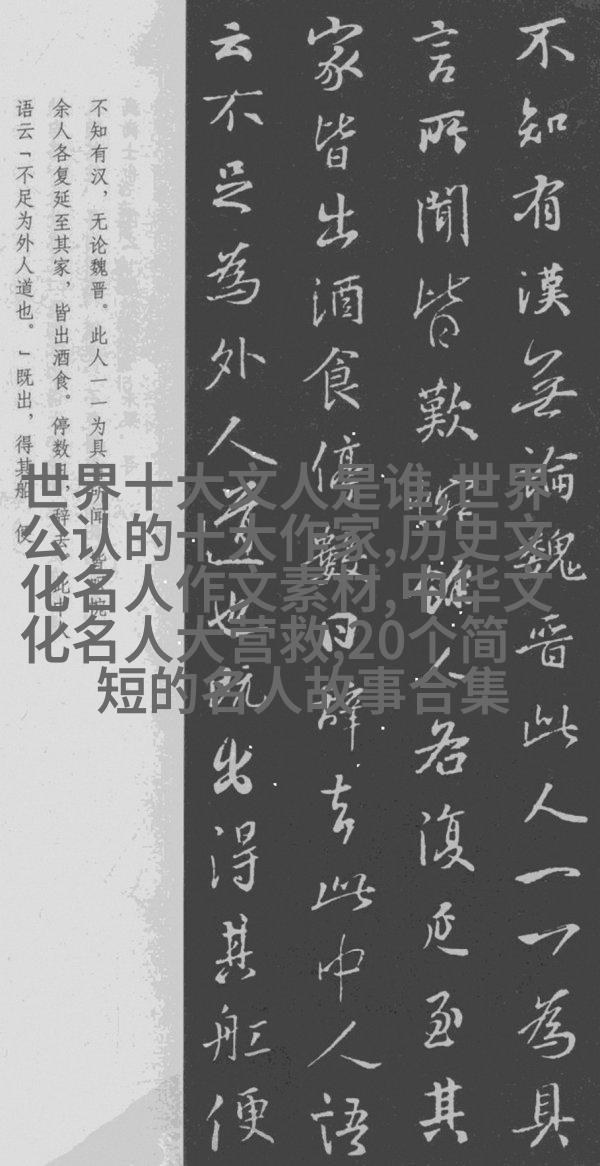 不知有漢無論魏晋此人一一為具
言所聞皆歎惋餘人各復延至其
家皆出酒食停數日辭去此中人語
云不足為外人道也既出得其舩便
不知有汉，无论魏晋。此人一一为具言所闻，皆叹惋
余人各复延至其家，皆出酒食。停数日，辞去。此中人
语云「不足为外人道也。」既出，得其船，便
世界十大文人是谁,世界
公认的十大作家,历史文
化名人作文素材,中华文
化名人大营救,20个简
短的名人故事合集